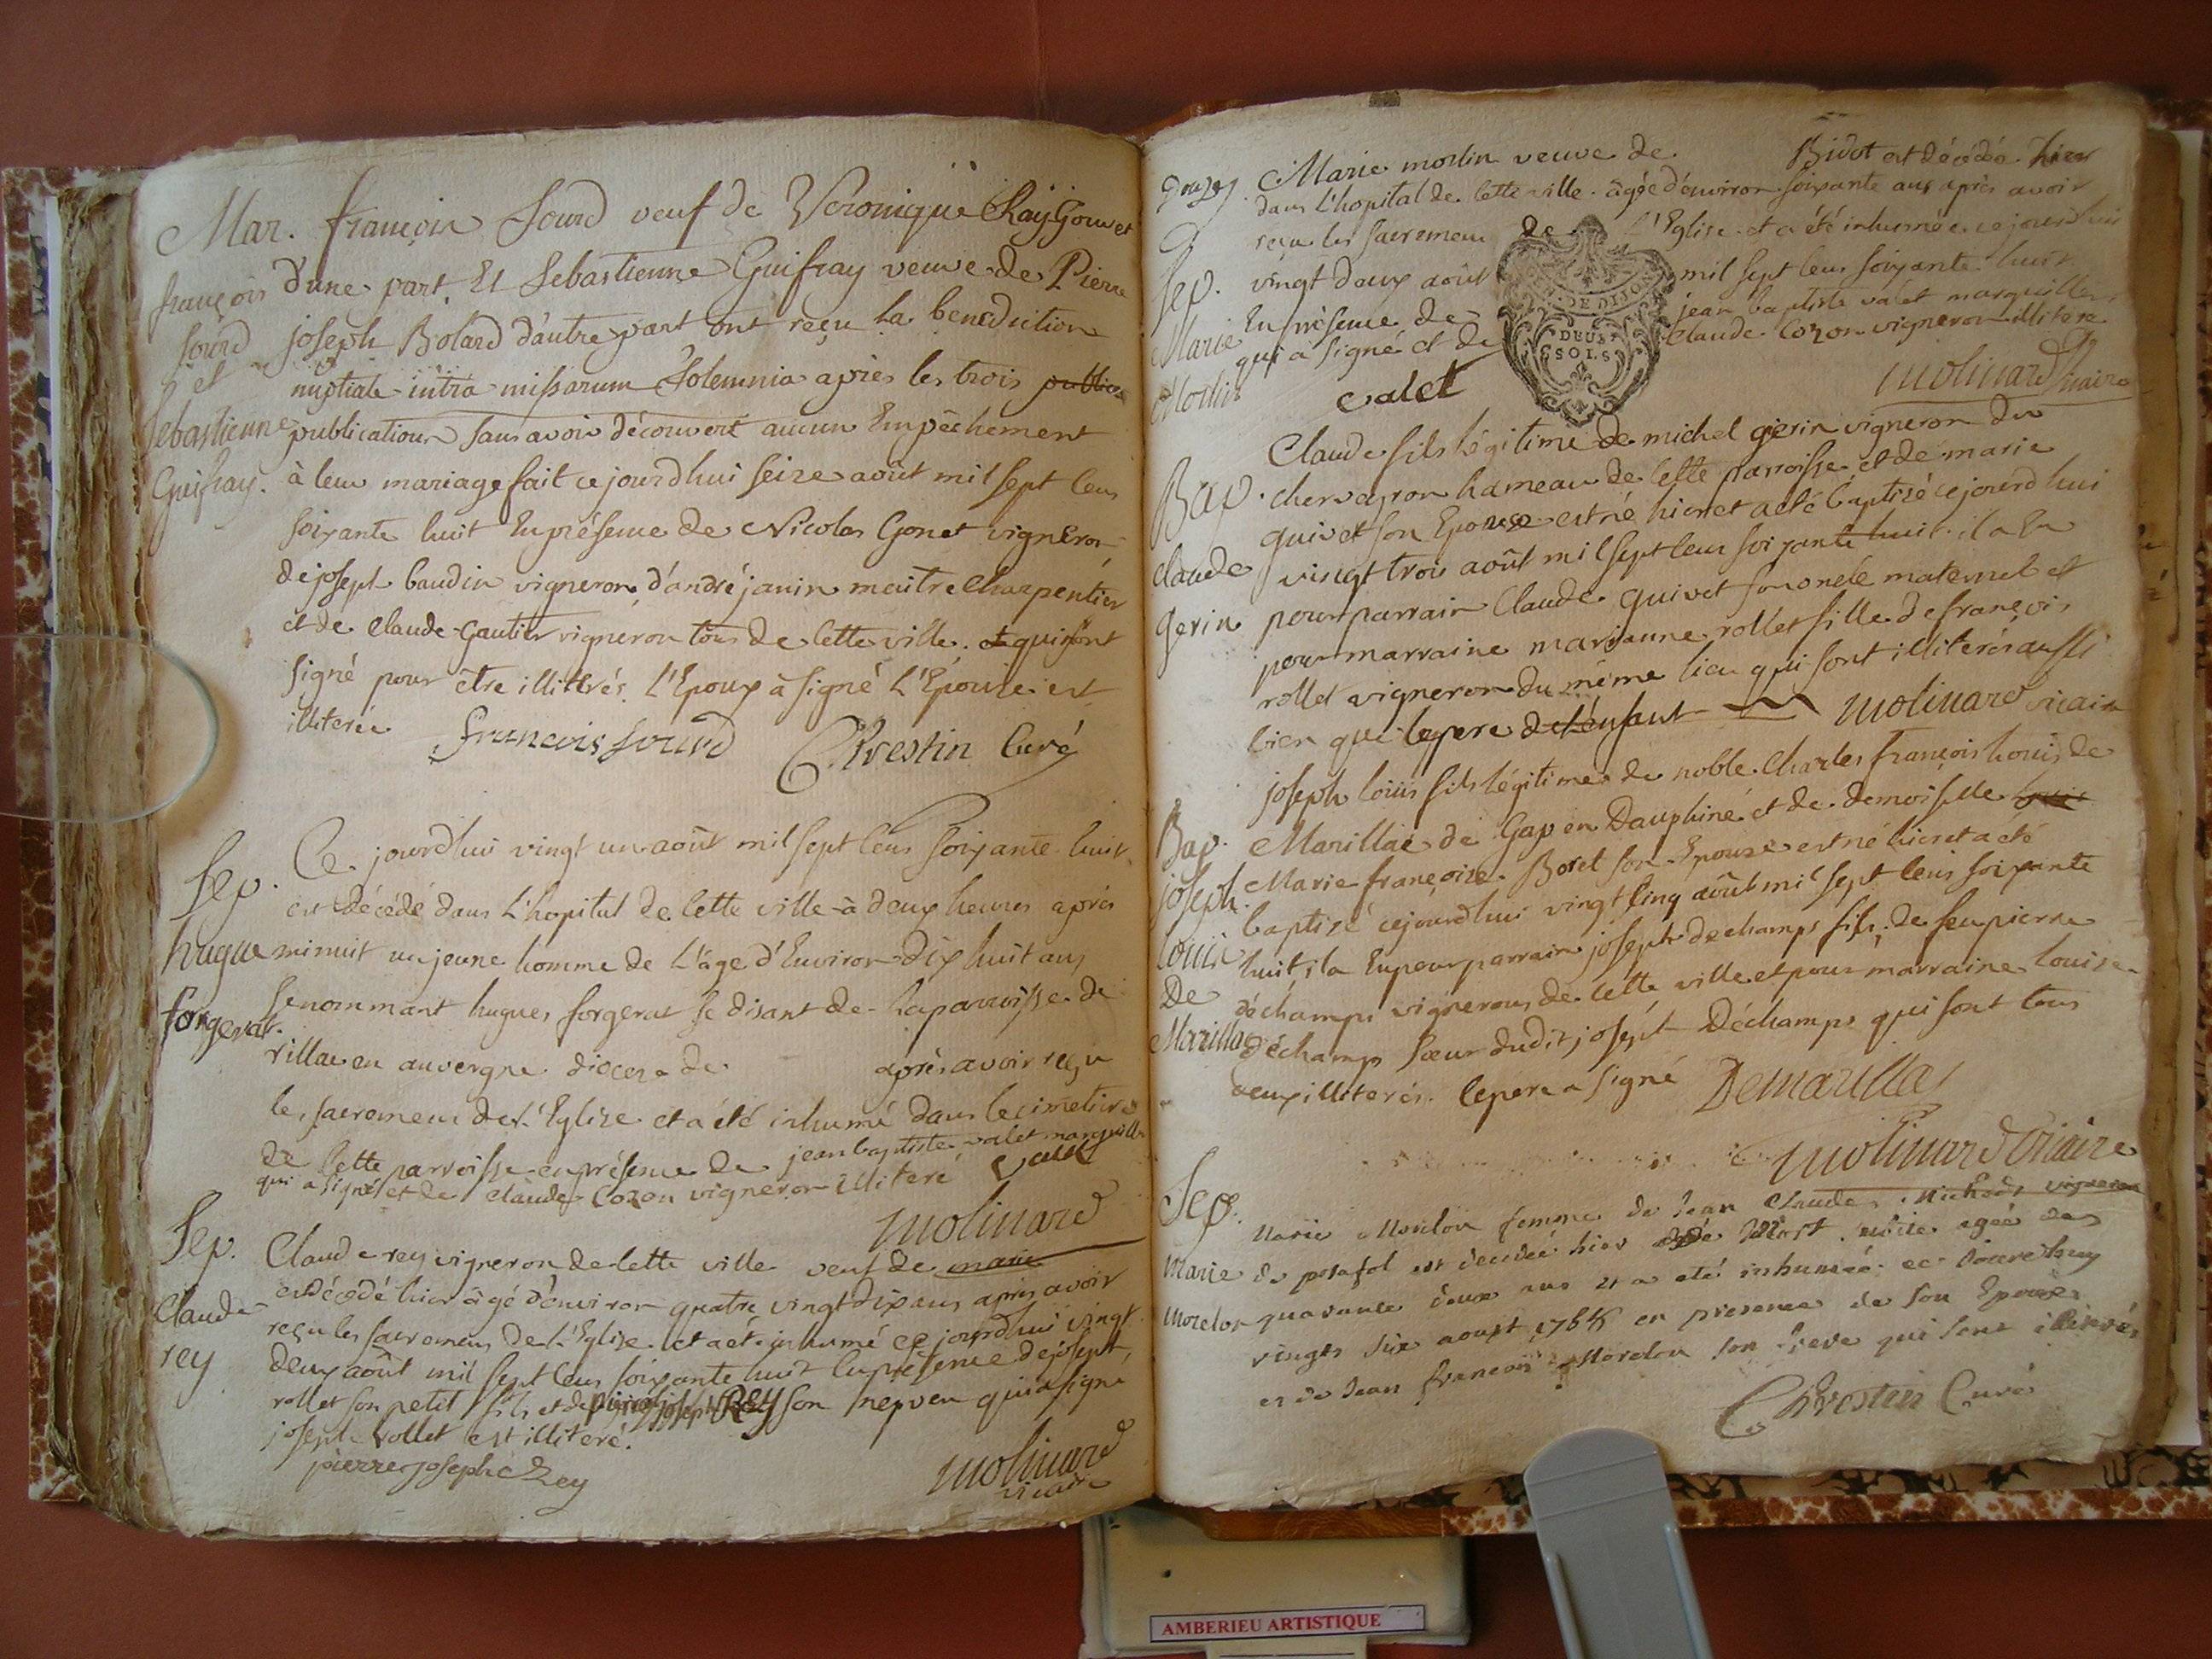 Mar. françois Sourd veuf de Veronique Ray Gouvet
françois d'une part, Et Sebastienne Guifray veuve de Pierre
Sourd joseph Bolard d'autre part ont reçu la benediction
et nuptiale intra missarum Solemnia après les trois public
Sebastienne publications sans avoir découvert aucun Empêchement
Guifray. à leur mariage fait ce jourdhui seize août mil sept cens
soixante huit En présence de Nicolas Gonet vigneron
de joseph baudin vigneron, d'andré janin maitre Charpentier
et de Claude Gautier vigneron tous de cette ville. et qui n'ont
signé pour être illiterés. L'Epoux à signé L'Epouse est
illiterée francois Sourd Chrestin Curé
Sep. Ce jourdhui vingt un août mil sept cens soixante huit
est décédé dans l'hopital de cette ville à deux heures après
hugue minuit un jeune homme de l'âge d'Environ dix huit ans
forgerat. se nommant hugues forgerat se disant de la parroisse de
rillac en auvergne diocese de après avoir reçu
les sacremens de l'Eglise et a été inhumé dans le cimetiere
de cette parroisse en présence de jean baptiste valet marguillier
qui a signé et de Claude Cozon vigneron illiteré valet
molinard
Sep. Claude rey vigneron de cette ville veuf de marie
Claude est décédé hier âgé d'environ quatre vingt dix ans après avoir
rey reçu les sacremens de l'Eglise et a été inhumé ce jourdhui vingt
deux août mil sept cens soixante huit En présence de joseph
rollet son petit fils et de pierre joseph Rey son nepveu qui a signé
joseph rollet est illiteré.
pierre joseph Rey molinard
vicaire
Marie morlin veuve de Bidot est décédée hier
dans l'hopital de cette ville âgée d'environ soixante ans après avoir
reçu les sacremens de l'Eglise et a été inhumée ce jourdhui
Sep. vingt deux août mil sept cens soixante huit
Marie En présence de jean baptiste valet marguillier
Morlin qui a signé et de Claude Cozon vigneron illiteré
DE DIJON
DEUX
SOLS
valet molinard vicaire
Claude fils légitime de michel gerin vigneron du
Bap. chervayron hameau de cette parroisse et de marie
quivet son Epouse est né hier et a été baptisé ce jourdhui
Claude vingt trois août mil sept cens soixante huit. il a Eu
gerin pour parrain Claude quivet son oncle maternel et
pour marraine marianne rollet fille de françois
rollet vigneron du même lieu qui sont illiterés aussi
bien que le pere de l'enfant molinard vicaire
joseph louis fils légitime de noble Charles françois louis de
Bap. Marillac de Gap en Dauphiné et de demoiselle
joseph Marie françoise Borel son Epouse est né hier et a été
louis baptisé ce jourdhui vingt cinq août mil sept cens soixante
De huit, il a Eu pour parrain joseph dechamps fils de feu pierre
Marillac déchamps vigneron de cette ville et pour marraine louise
déchamps sœur dudit joseph Déchamps qui sont tous
deux illiterés. le pere a signé Demarillac
molinard vicaire
Sep. Marie Morelon femme de Jean Claude Michod vigneron
Marie de posafol est decedeé hier agée de
Morelon quarante deux ans et a eté inhumeé ce Jourdhuy
vingts six aoust 1768 en presence de son Epoux
et de Jean francois Morelon son frere qui sont illiterés
Chrestin Curé
AMBERIEU ARTISTIQUE